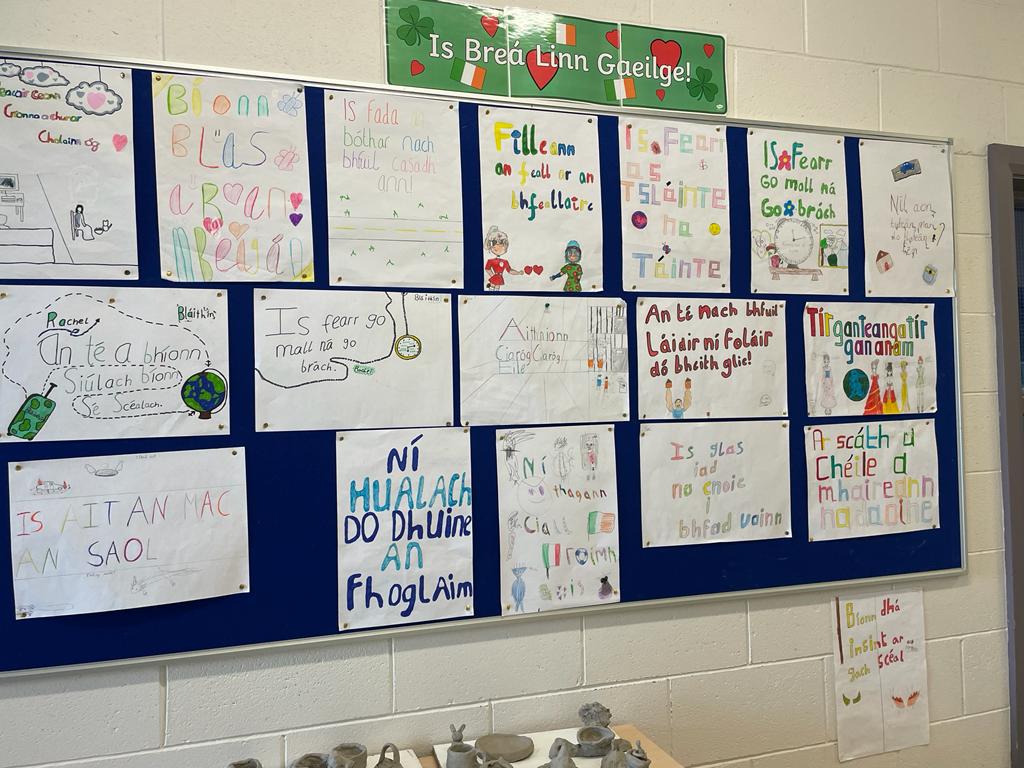 Is Breá Linn Gaeilge!
Cíonn
Gíorra a chuirar
Cholainn óg
Bíonn
BLas
a Ran
IS fada
bóthar nach
bhfuil casadh
ann!
Filleann
an feall ar an
bhfeallaire
Is Fearr
as
TSLÁINTE
na
Táinte
IS Fearr
Go mall ná
Go brách
Níl aon
Rachel
Bláithín
An té a bhíonn
Siúlach bíonn
Sé Scéalach.
Is fearr go
mall ná go
brách.
Aithníonn
Ciaróg Ciaróg
Eile
An té nach bhfuil
Láidir ní foláir
dó bheith glic!
Tír gan teanga tír
gan anam
IS AIT AN MAC
AN SAOL
NÍ
HUALACH
DO DhUine
AN
FhoglAim
Ní
thagann
Ciall
roimh
aois
Is glas
iad
na cnoic
i
bhfad uainn
Ar scáth a
Chéile a
mhaireann
na daoine
Bíonn dhá
insint ar
gach Scéal